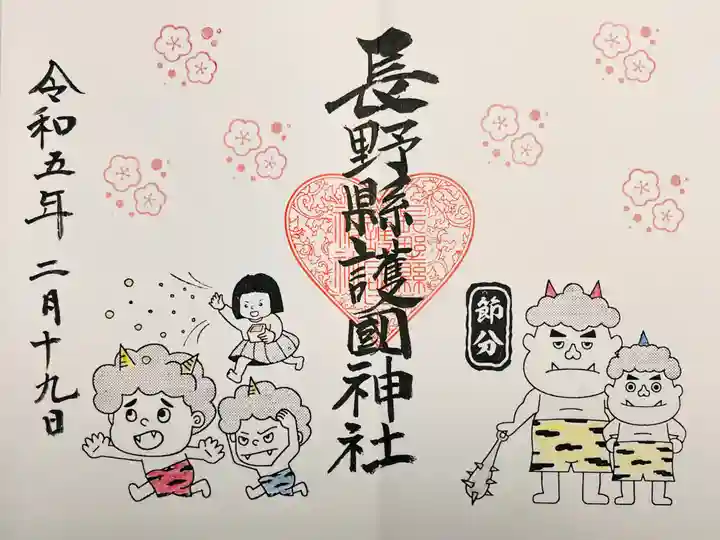 長野縣護國神社
節分
令和五年 二月十九日